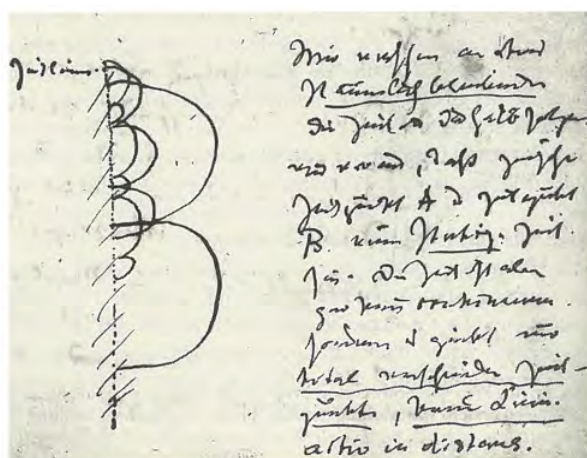 Zeitlinie.
Wir messen an etwas
Räumlich bleibendem
die Zeit und deshalb setzen
wir voraus, daß zwischen
Zeitpunkt A u Zeitpunkt
B eine stetige Zeit
sei. Die Zeit ist aber
gar kein continuum.
sondern es giebt nur
total verschiedene Zeit-
punkte, keine Linie.
actio in distans.